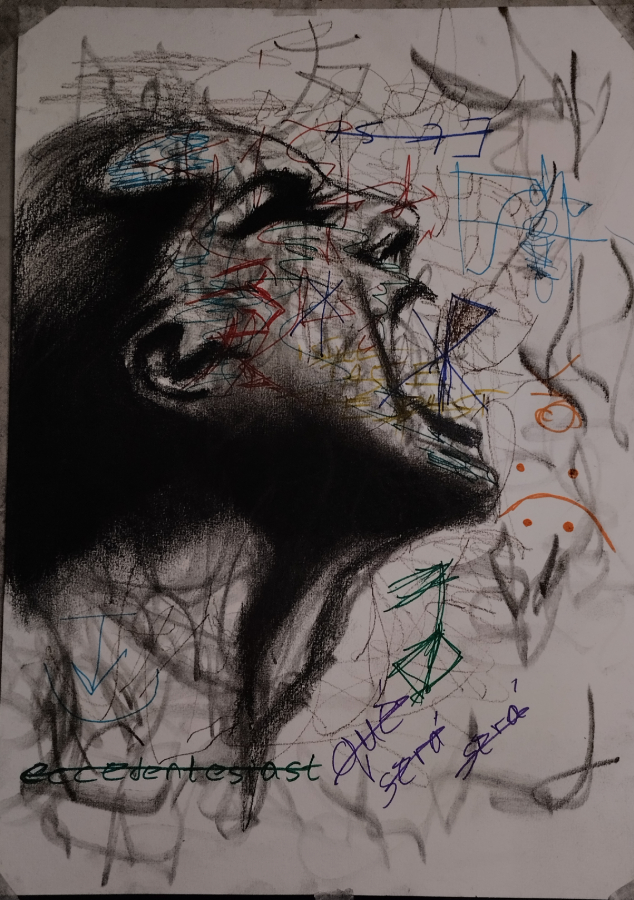 eccedentesiast
Qué
será
será